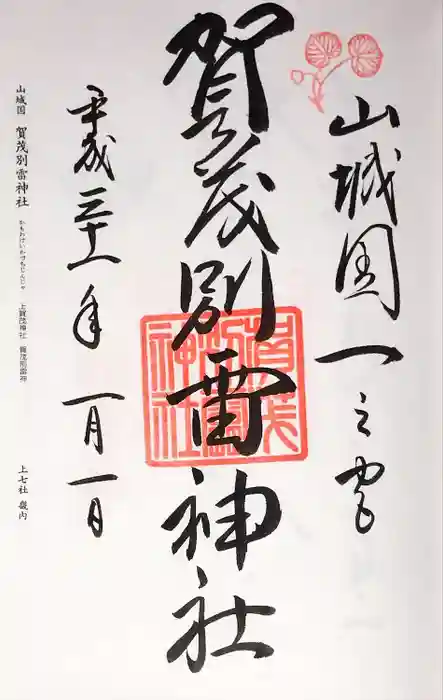 山城国一之宮
賀茂別雷神社
賀茂別雷神社
平成三十一年一月一日
山城国 賀茂別雷神社 かもわけいかづちじんじゃ 上賀茂神社 賀茂別雷神 上七社 畿内